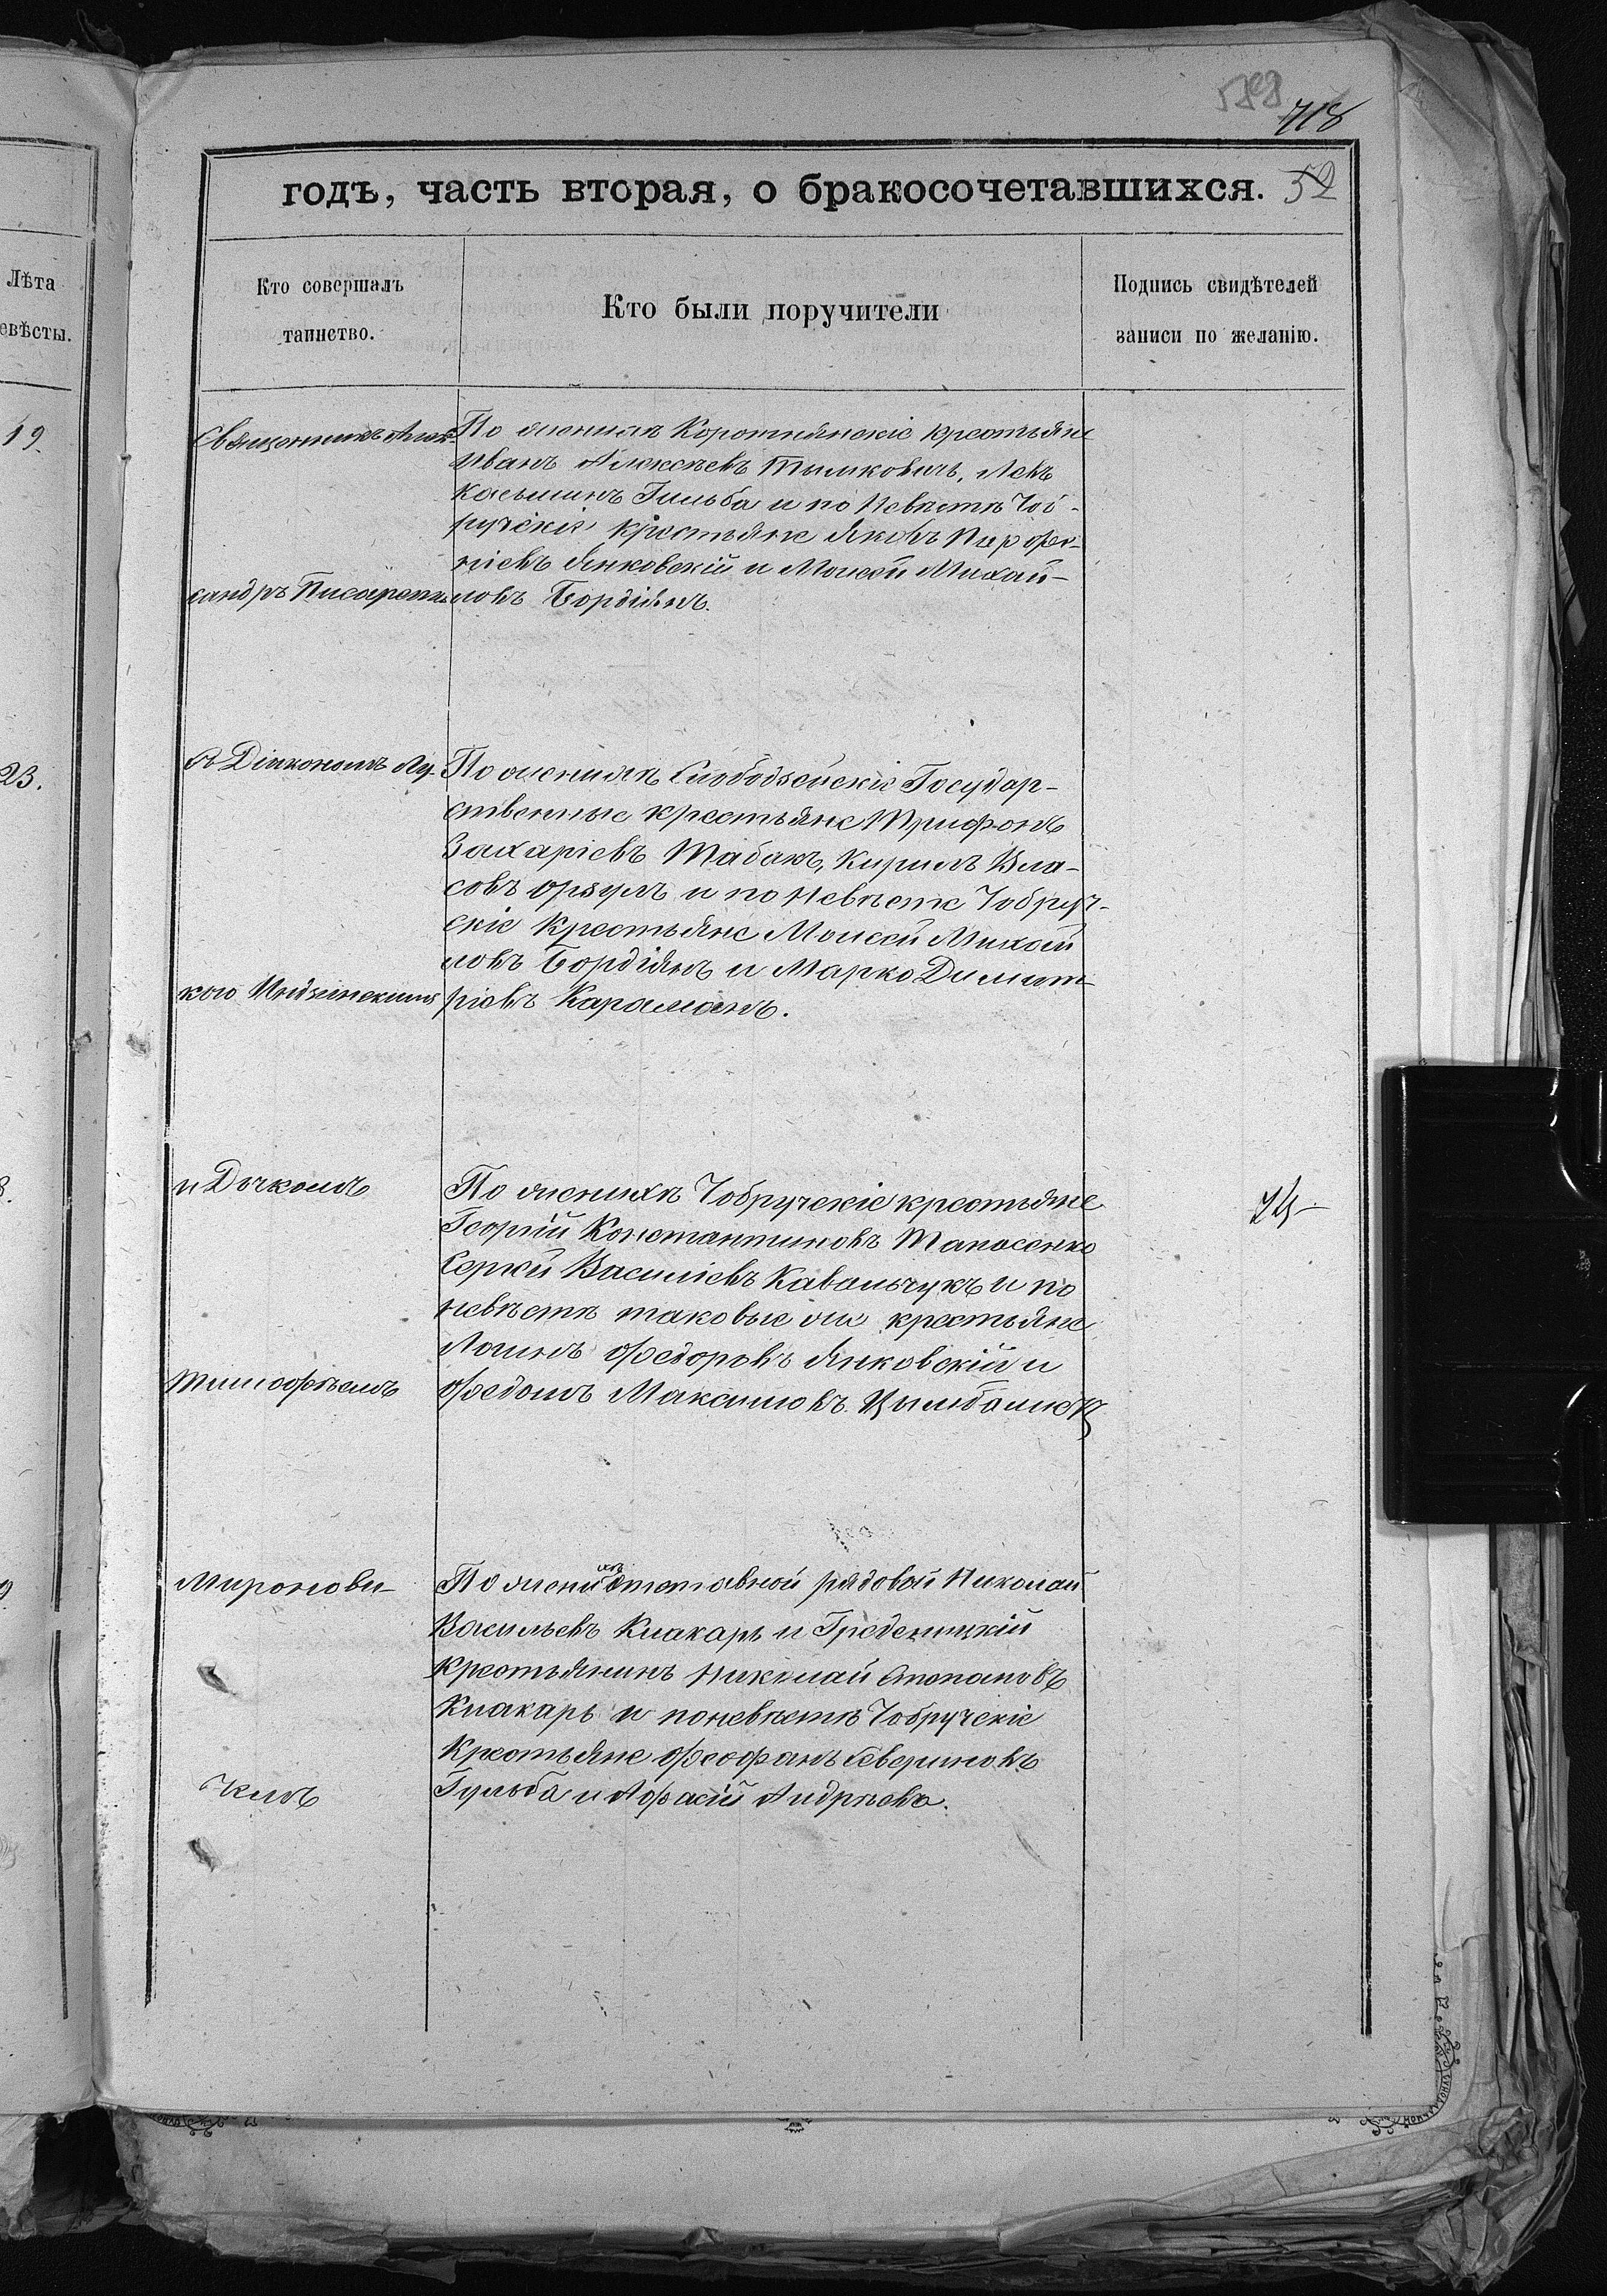 588
718
годъ, часть вторая, о бракосочетавшихся. 52
Лѣта
евѣсты.
Кто совершалъ
таинство.
Кто были поручители
Подпись свидѣтелей
записи по желанію.
19.
Священникъ Алек-
сандръ Писаренко
По женихѣ Коротнянскіе крестьяне
Иванъ Алексѣевъ Тымковичъ, Левъ
Косьминъ Гильба и по Невѣстѣ Чоб-
ручскіе крестьяне Яковъ Парфе-
ніевъ Янковскій и Моисей Михай-
ловъ Бордіянъ.
23.
съ Діякономъ Лу-
кою
По женихѣ Слободзейскіе Государ-
ственные крестьяне Трифонъ
Захаріевъ Табакъ, Кирилъ Вла-
совъ Орзулъ и по Невѣсте Чобруч-
скіе Крестьяне Моисей Михай
ловъ Бордіянъ и Марко Димит-
ріевъ Караманъ.
и Дячкомъ
Тимофѣемъ
По женихѣ Чобручскіе крестьяне
Георгій Константиновъ Танасенко
Сергѣй Василіевъ Кавальчукъ и по
невѣстѣ таковые же крестьяне
Логинъ Федоровъ Янковскій и
Федотъ Максимовъ
Миронови-
чемъ
По женихѣ отставной рядовой Николай
Васильевъ Кнакарь и Граденицкій
крестьянинъ Николай Степановъ
Кнакарь и поневѣстѣ Чобручскіе
Крестьяне Феофанъ Севериновъ
Гульба и Афасій Андрѣевъ.